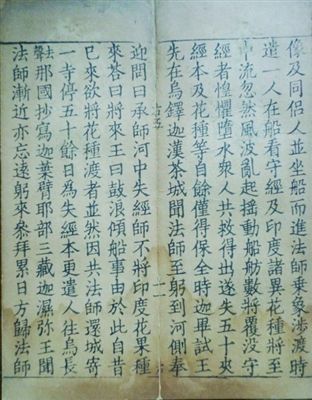 像及同侶人並坐船而進法師乘象涉渡時
遣一人在船看守經及印度諸異花種將至
中流忽然風波亂起搖動船舫數將覆沒守
經者惶懼墮水衆人共救得出遂失五十夾
經本及花種等自餘僅得保全時迦畢試王
先在烏鐸迦漢茶城聞法師至躬到河側奉
迎問曰承師河中失經師不將印度花果種
來荅曰將來王曰鼓浪傾船事由於此自昔
已來欲將花種渡者並然因共法師還城寄
一寺停五十餘日為失經本更遣人往烏長
去聲那國抄寫迦葉臂耶部三藏迦濕弥王聞
法師漸近亦忘遠躬來參拜累日方歸法師